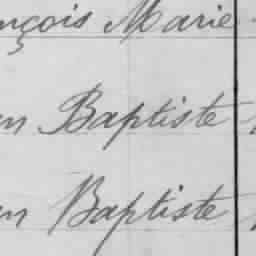 nçois Marie
n Baptiste
n Baptiste